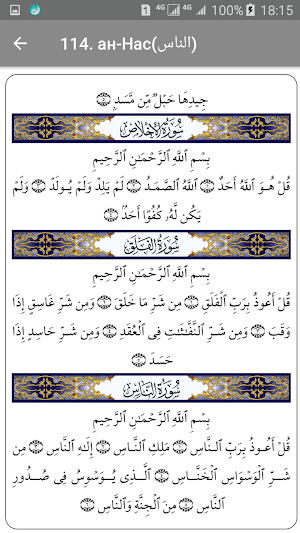 4G 4G 100% 18:15
114. ан-Нас(الناس)
جِيدِهَا حَبْلٌ مِّن مَّسَدٍ ۝٥
سُورَةُ الإِخْلَاصِ
بِسْمِ ٱللَّهِ ٱلرَّحْمَـٰنِ ٱلرَّحِيمِ
قُلْ هُوَ ٱللَّهُ أَحَدٌ ۝١ ٱللَّهُ ٱلصَّمَدُ ۝٢ لَمْ يَلِدْ وَلَمْ يُولَدْ ۝٣ وَلَمْ
يَكُن لَّهُۥ كُفُوًا أَحَدٌۢ ۝٤
سُورَةُ الْفَلَقِ
بِسْمِ ٱللَّهِ ٱلرَّحْمَـٰنِ ٱلرَّحِيمِ
قُلْ أَعُوذُ بِرَبِّ ٱلْفَلَقِ ۝١ مِن شَرِّ مَا خَلَقَ ۝٢ وَمِن شَرِّ غَاسِقٍ إِذَا
وَقَبَ ۝٣ وَمِن شَرِّ ٱلنَّفَّـٰثَـٰتِ فِى ٱلْعُقَدِ ۝٤ وَمِن شَرِّ حَاسِدٍ إِذَا
حَسَدَ ۝٥
سُورَةُ النَّاسِ
بِسْمِ ٱللَّهِ ٱلرَّحْمَـٰنِ ٱلرَّحِيمِ
قُلْ أَعُوذُ بِرَبِّ ٱلنَّاسِ ۝١ مَلِكِ ٱلنَّاسِ ۝٢ إِلَـٰهِ ٱلنَّاسِ ۝٣ مِن
شَرِّ ٱلْوَسْوَاسِ ٱلْخَنَّاسِ ۝٤ ٱلَّذِى يُوَسْوِسُ فِى صُدُورِ
ٱلنَّاسِ ۝٥ مِنَ ٱلْجِنَّةِ وَٱلنَّاسِ ۝٦